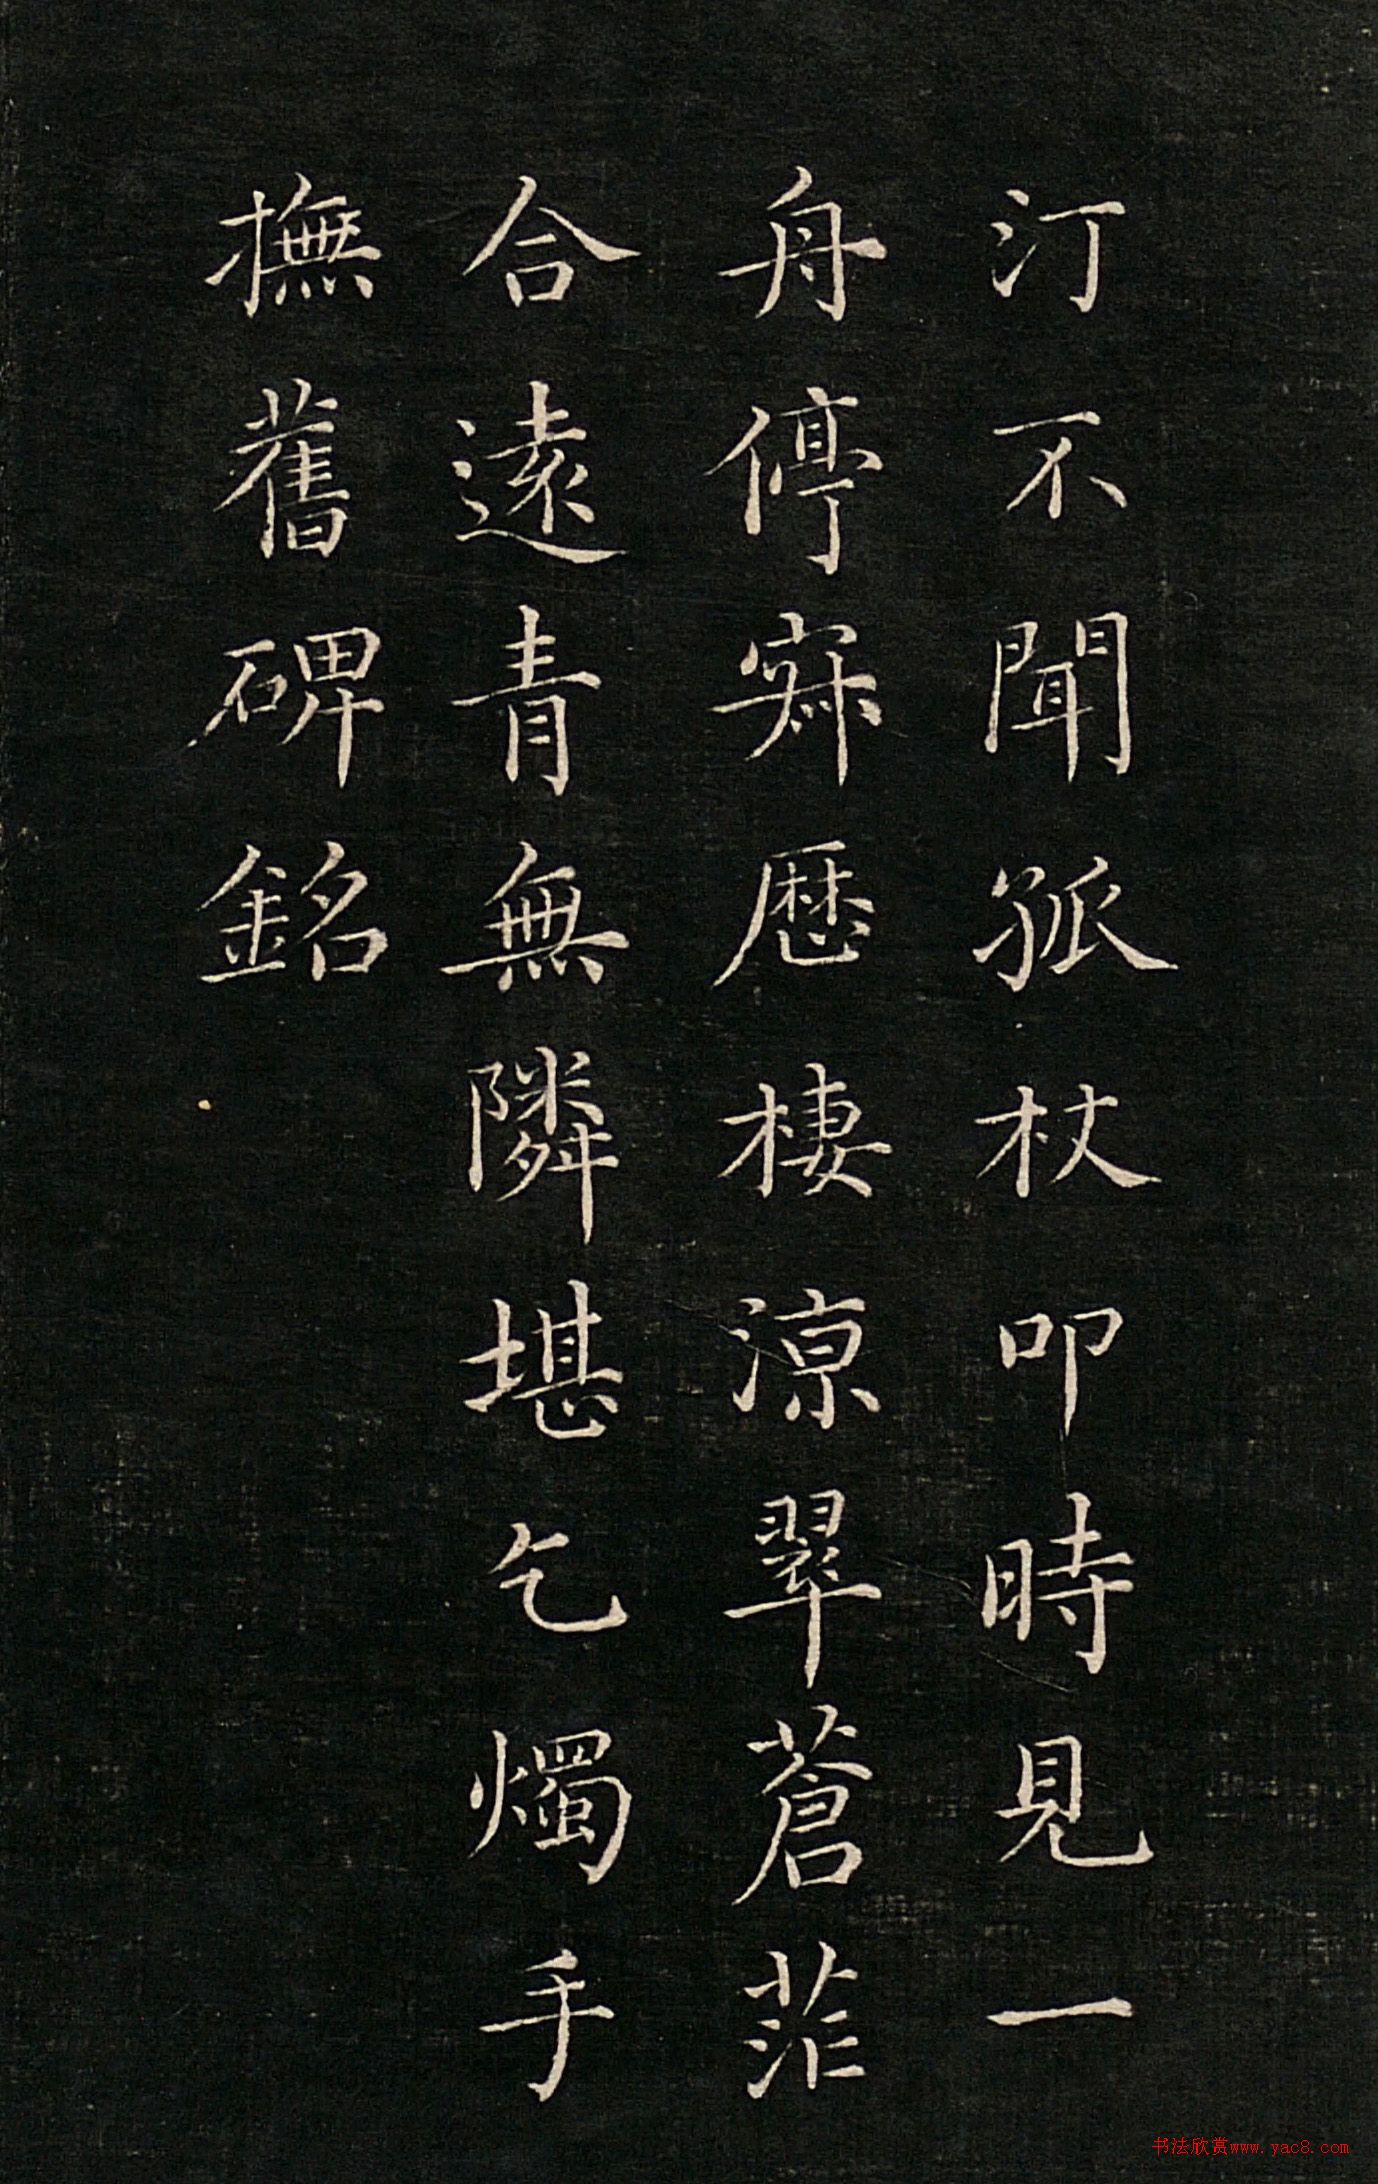 汀不聞孤杖叩時見一
舟停寂歷棲涼翠蒼茫
合遠青無隣堪乞燭手
撫舊碑銘
书法欣赏www.yac8.com